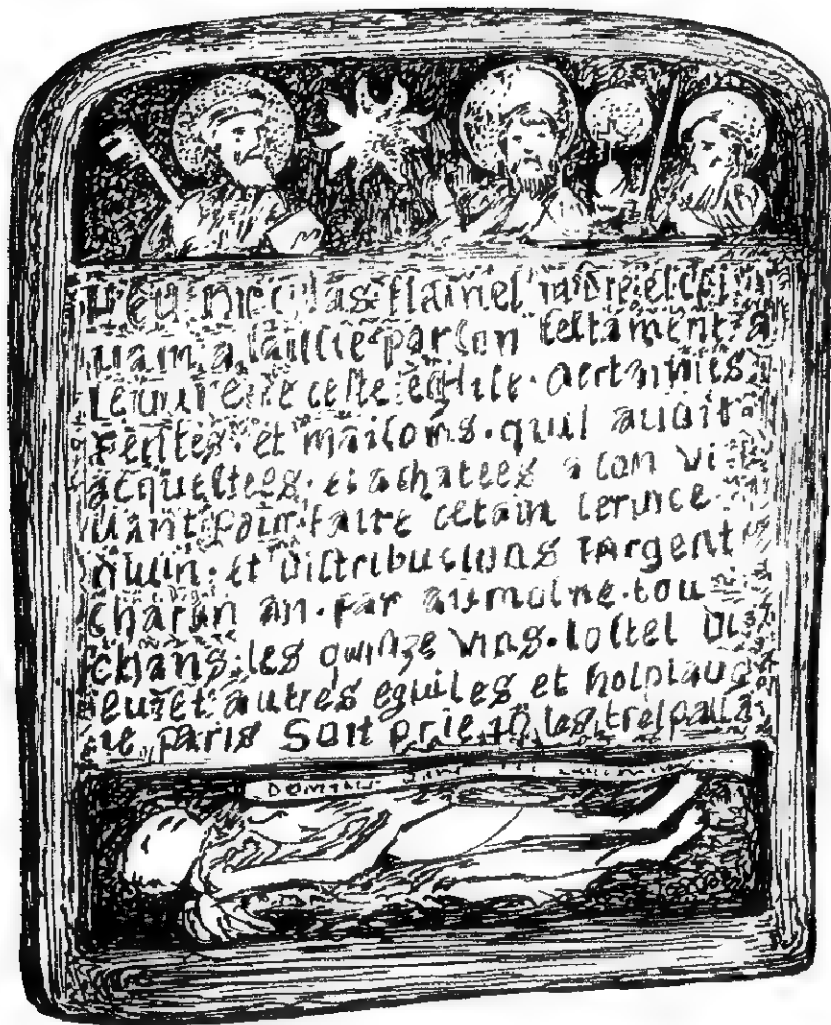 Feu nicolas flamel iadis escri
uain a laissie par son testament a
leuure de ceste eglise certaines
rentes et maisons quil auoit
acquestees et achatees a son vi
uant pour faire certain seruice
diuin et distribucions dargent
chascun an par aumosne tou
chans les quinze vins lostel di
eu et autres eglises et hospiaux
de paris Soit prie les trespassez